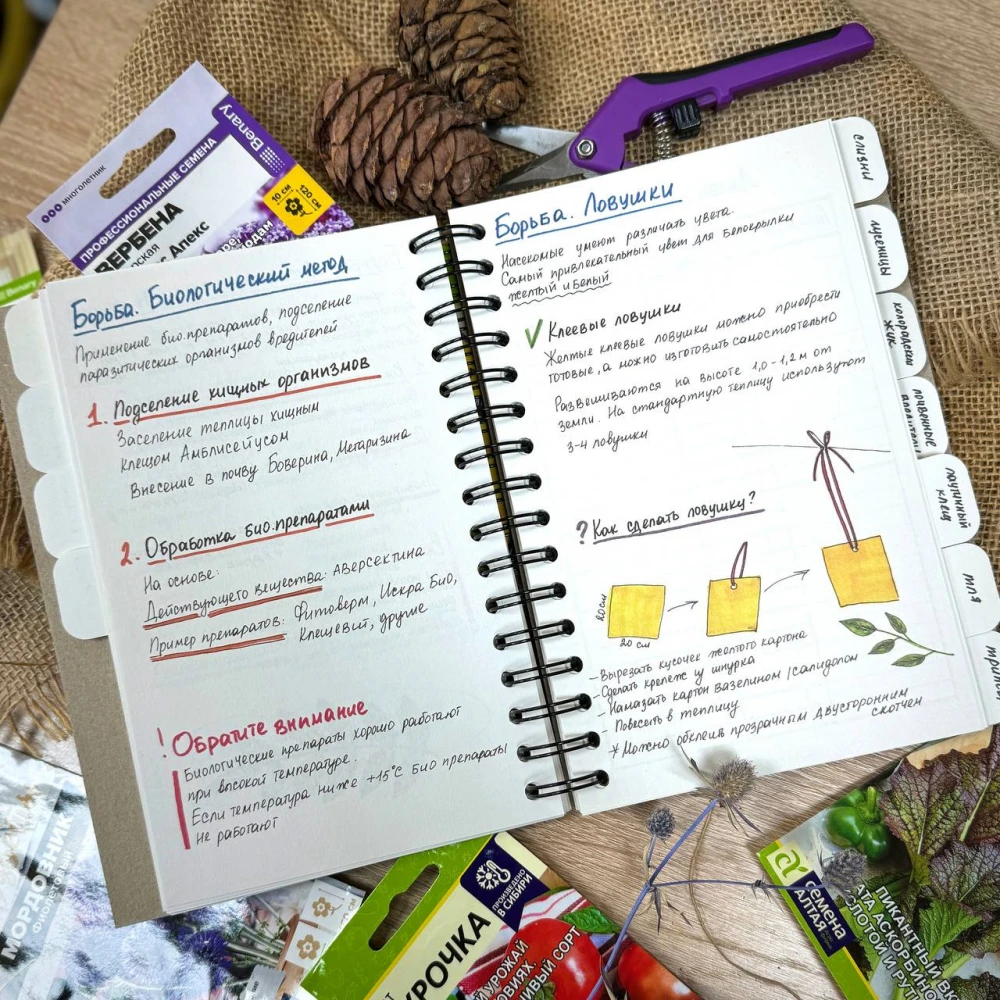 ООО многолетник
ПРОФЕССИОНАЛЬНЫЕ СЕМЕНА
Benary
ВЕРБЕНА
Апекс
10 см
120 см
Борьба. Биологический метод
Применение био.препаратов, подселение
паразитических организмов вредителей
1. Подселение хищных организмов
Заселение теплицы хищным
клещом Амблисейусом
Внесение в почву Боверина, Метаризина
2. Обработка био.препаратами
На основе:
Действующего вещества: Аверсектина
Пример препаратов: Фитоверм, Искра Био,
Клещевит, другие
! Обратите внимание
Биологические препараты хорошо работают
при высокой температуре.
Если температура ниже +15°С био препараты
не работают
Борьба. Ловушки
Насекомые умеют различать цвета.
Самый привлекательный цвет для Белокрылки
желтый и белый
Клеевые ловушки
Желтые клеевые ловушки можно приобрести
готовые, а можно изготовить самостоятельно
Развешиваются на высоте 1,0-1,2м от
земли. На стандартную теплицу используют
3-4 ловушки
? Как сделать ловушку?
20см
20 см
- Вырезать кусочек желтого картона
- Сделать крепеж из шнурка
- Намазать картон вазелином / салидолом
- Повесить в теплицу
* Можно обклеив прозрачным двусторонним
скотчем
слизни
колорадский
жук
почвенные
паутинный
клещ
тля
МОРДОВНИК
ПРОИЗВЕДЕНО
В СИБИРИ
УРОЧКА
УРОЖАЙ
семена
АЛТАЯ
ПИКАНТНЫЙ